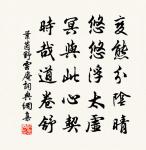 變態分陰晴
悠悠浮太虛
冥與此心契
時哉道卷舒
葉茵野雲庵詞典網集